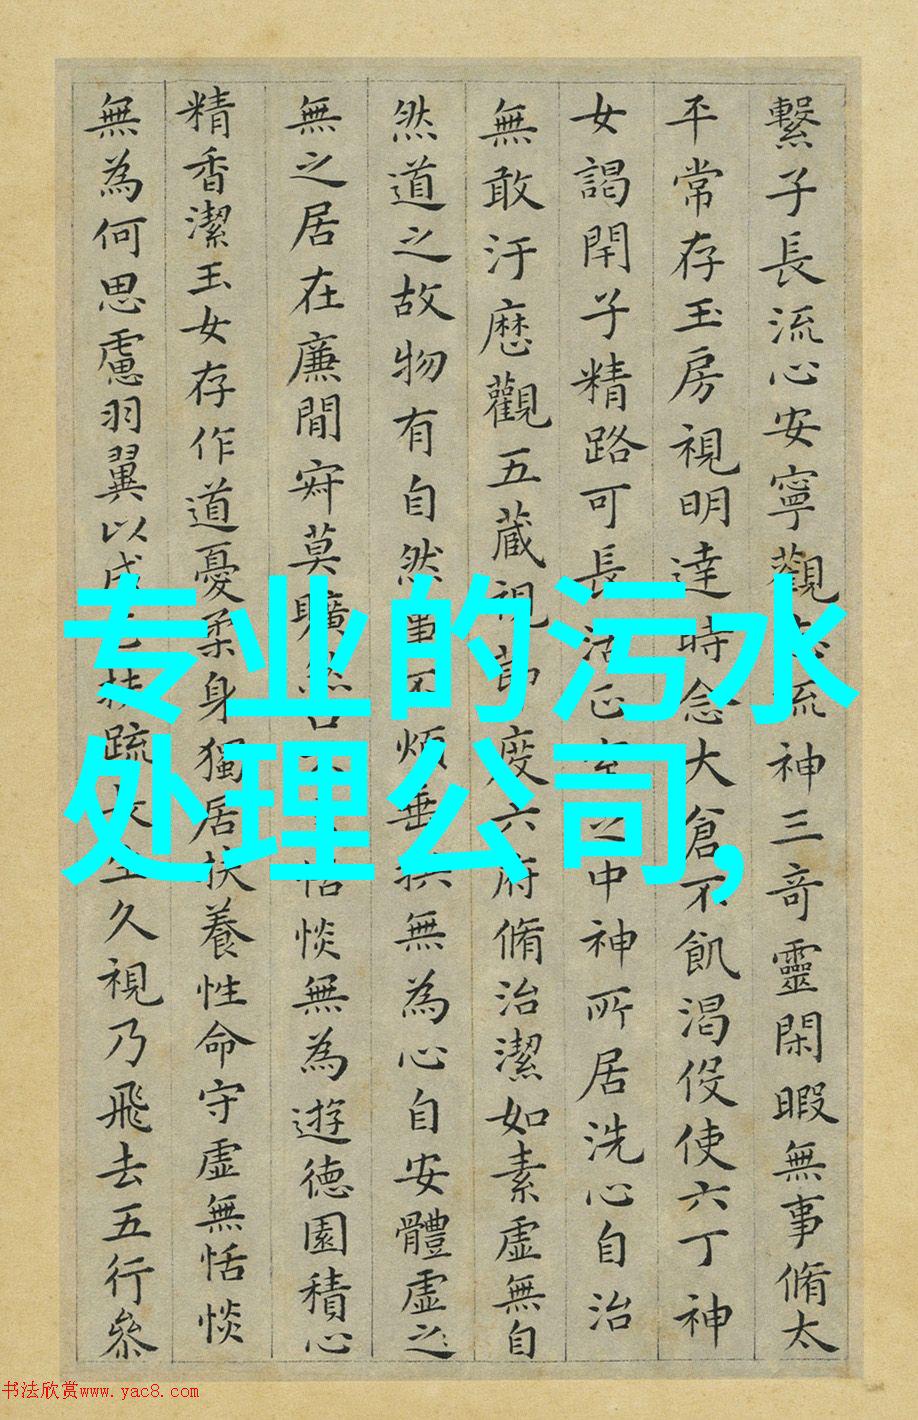 繫子長流心安寧觀志流神三竒靈閑暇無事脩太
平常存玉房視明達時念大倉不飢渴伇使六丁神
女謁閇子精路可長活正室之中神所居洗心自治
無敢汙歷觀五藏視節度六府脩治潔如素虛無自
然道之故物有自然事不煩垂拱無為心自安體虛之
無之居在廉閒寂莫曠然口不言恬惔無為遊德園積心
精香潔玉女存作道憂柔身獨居扶養性命守虛無恬惔
無為何思慮羽翼以成正扶疏長生久視乃飛去五行參
专业的污水
处理公司,
书法欣赏www.yac8.com